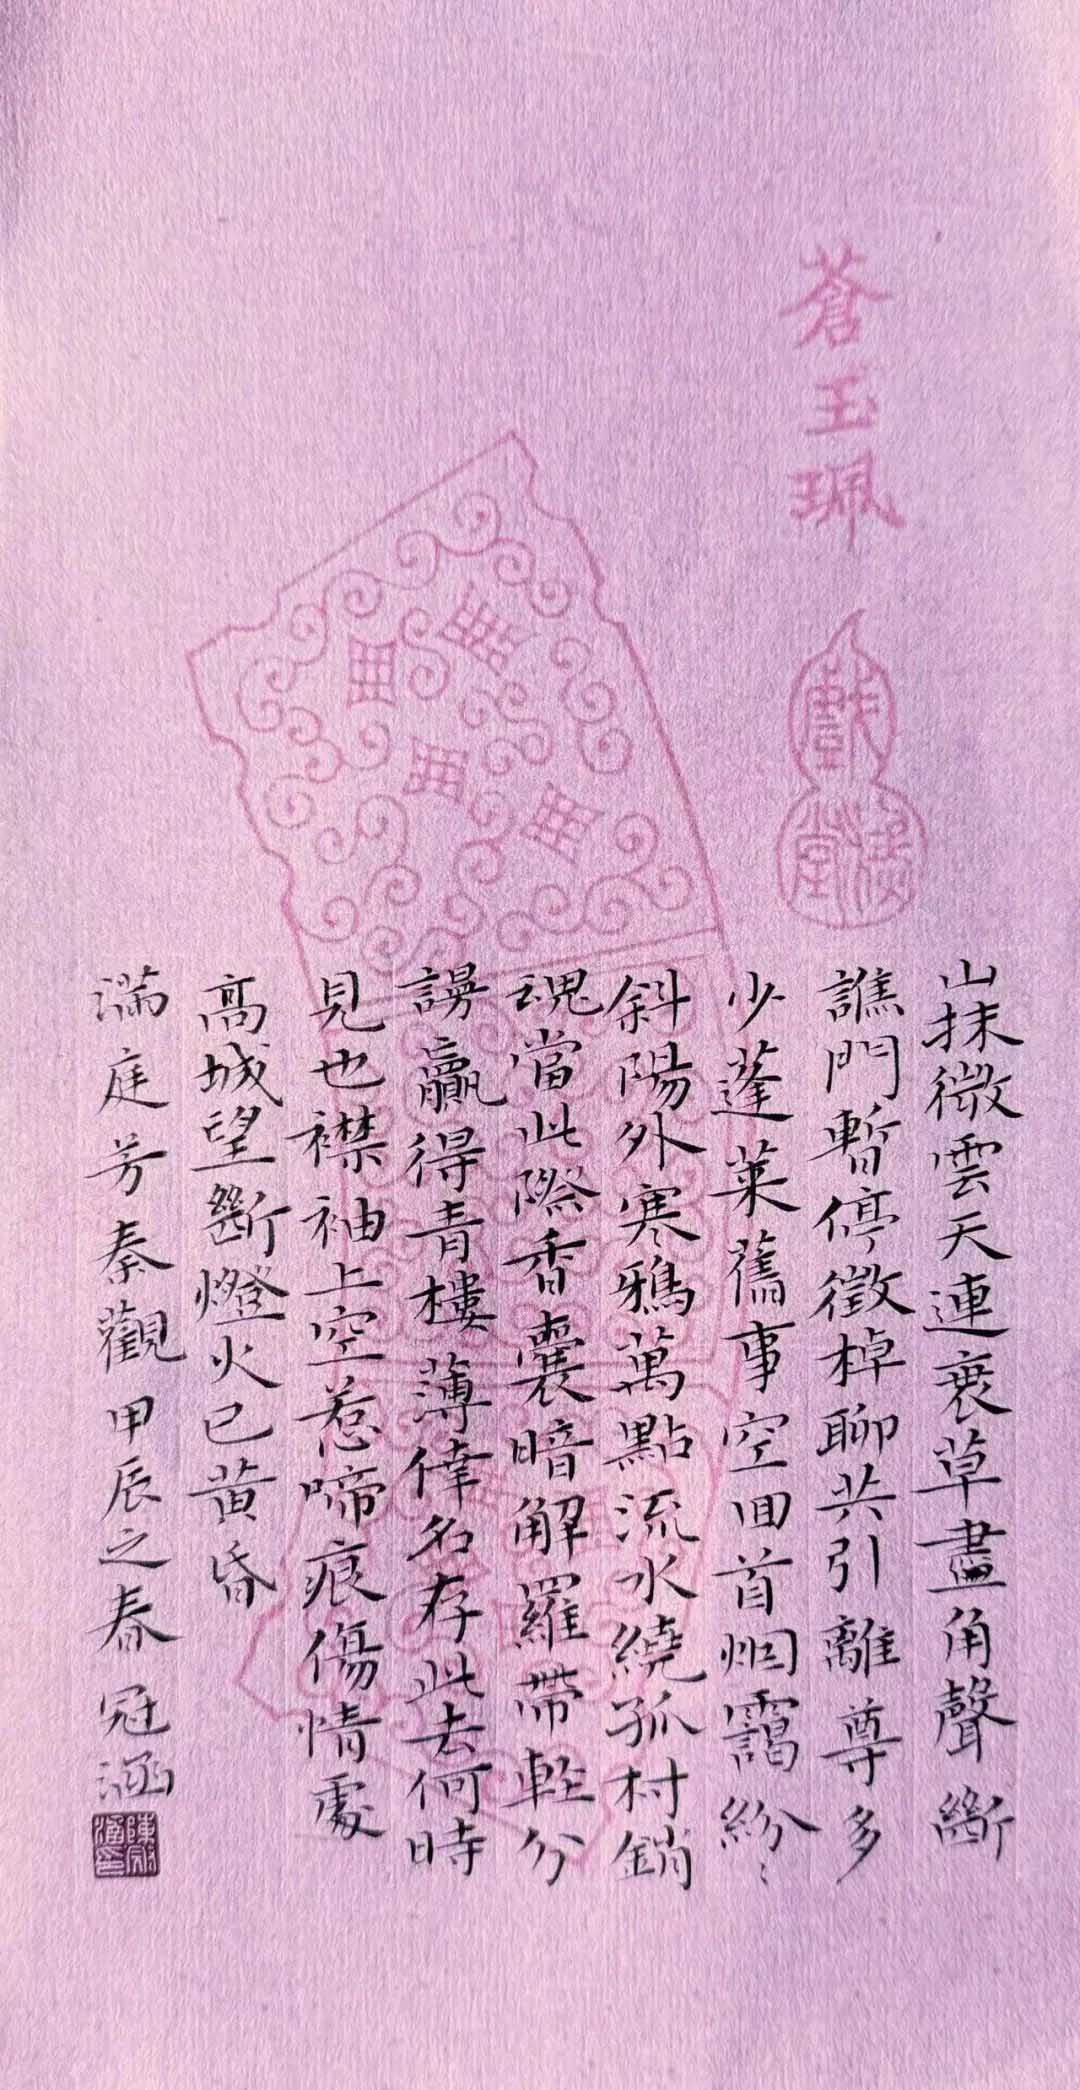 蒼玉珮
山抹微雲天連衰草畫角聲斷
譙門暫停徵棹聊共引離尊多
少蓬萊舊事空回首烟靄紛〻
斜陽外寒鴉萬點流水繞孤村銷
魂當此際香囊暗解羅帶輕分
謾贏得青樓薄倖名存此去何時
見也襟袖上空惹啼痕傷情處
高城望斷燈火已黃昏
滿庭芳秦觀甲辰之春冠涵